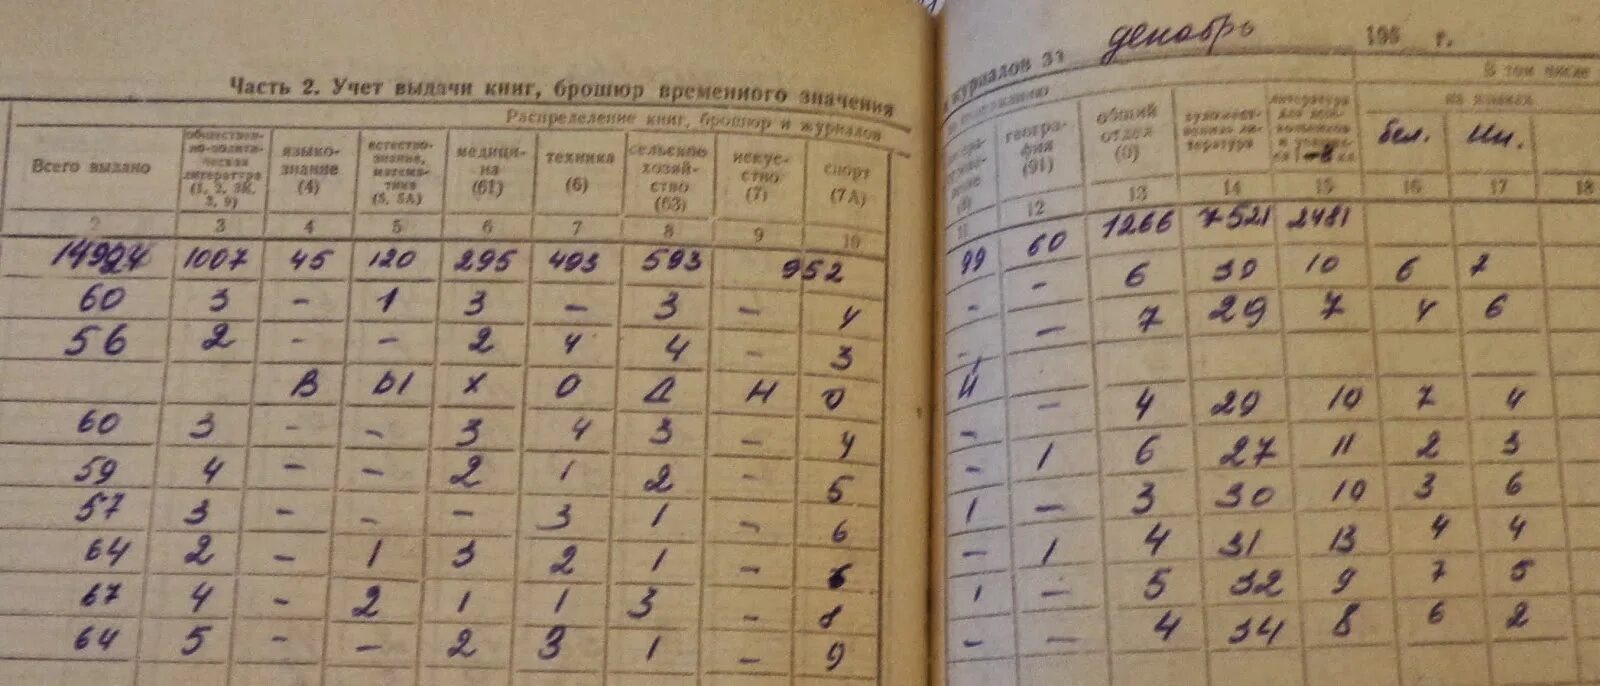 декабрь 198 г.
Часть 2. Учет выдачи книг, брошюр временного значения
журналов за
В том числе
Распределение книг, брошюр и журналов
на языках
Всего выдано
общественно-политическая литература (1, 2, 3К, 3, 9)
языкознание (4)
естествознание, математика (5, 5А)
медицина (61)
техника (6)
сельское хозяйство (63)
искусство (7)
спорт (7А)
география (91)
общий отдел (0)
художественная литература
бел.
ин.
2 3 4 5 6 7 8 9 10 11 12 13 14 15 16 17 18
14924 1007 45 120 295 493 593 952 99 60 1266 7521 2481
60 3 - 1 3 - 3 - 4 - - 6 30 10 6 7
56 2 - - 2 4 4 - 3 - - 7 29 7 4 6
В Ы Х О Д Н О Й
60 3 - - 3 4 3 - 4 - - 4 29 10 7 4
59 4 - - 2 1 2 - 5 - 1 6 27 11 2 3
57 3 - - - 3 1 - 6 1 - 3 30 10 3 6
64 2 - 1 3 2 1 - 6 - 1 4 31 13 4 4
67 4 - 2 1 1 3 - 8 1 - 5 32 9 7 5
64 5 - - 2 3 1 - 9 - - 4 34 8 6 2